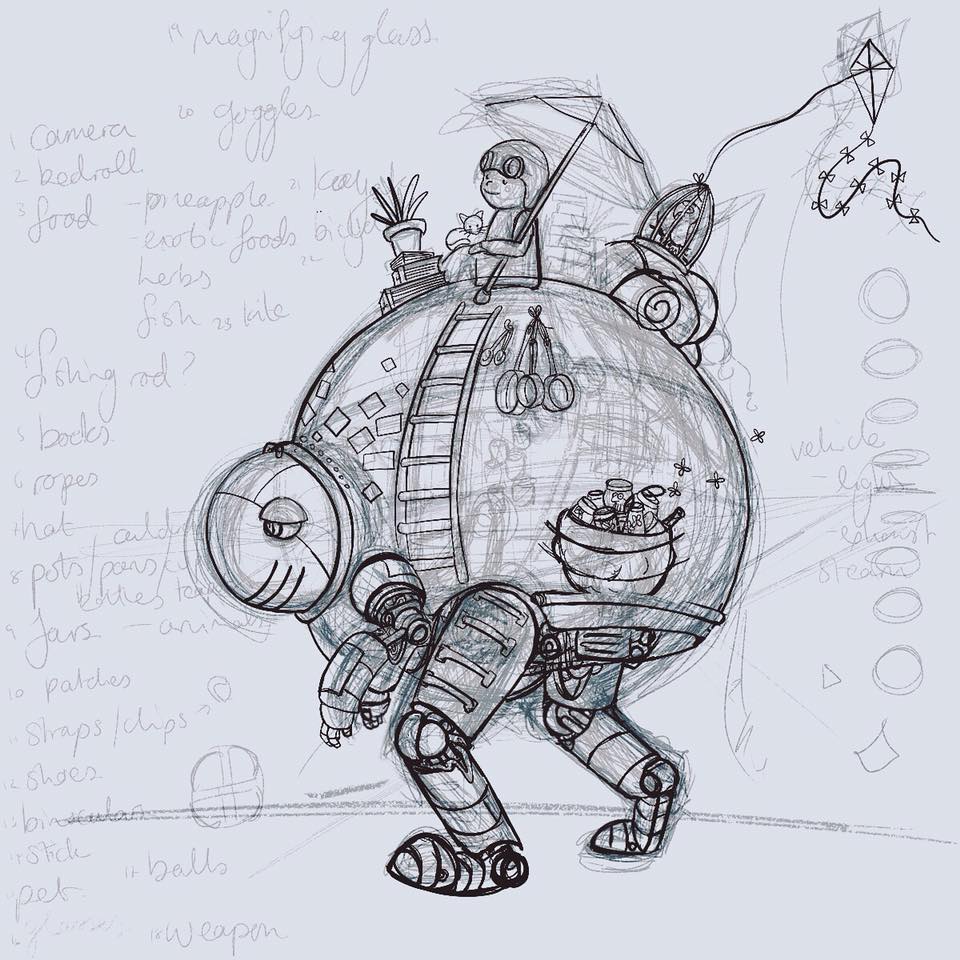 19 magnifying glass
20 goggles
1 camera
2 bedroll
3 food - pineapple
- exotic foods
herbs
fish
21
bicycle
22
23 kite
4 fishing rod?
5 books
6 ropes
hat
8 pots/pans/
kettles
9 Jars - animals
10 patches
11 straps/clips
12 shoes
13 binoculars
14 stick
pet
16
17 balls
18 weapon
vehicle
- light
- exhaust
steam